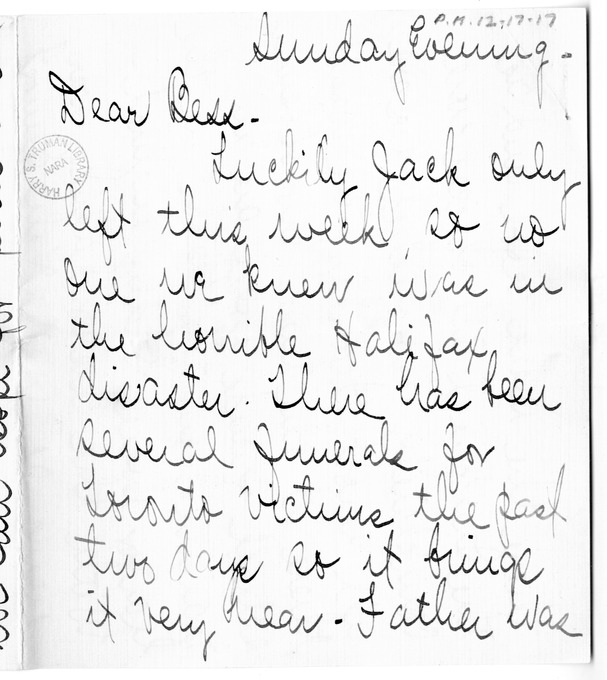 P.M. 12-17-17
Sunday Evening -
Dear Bess -
Luckily Jack only
left this week so no
one we knew was in
the horrible Halifax
disaster. There has been
several funerals for
Toronto victims the past
two days so it brings
it very near - Father was
HARRY S. TRUMAN LIBRARY
NARA